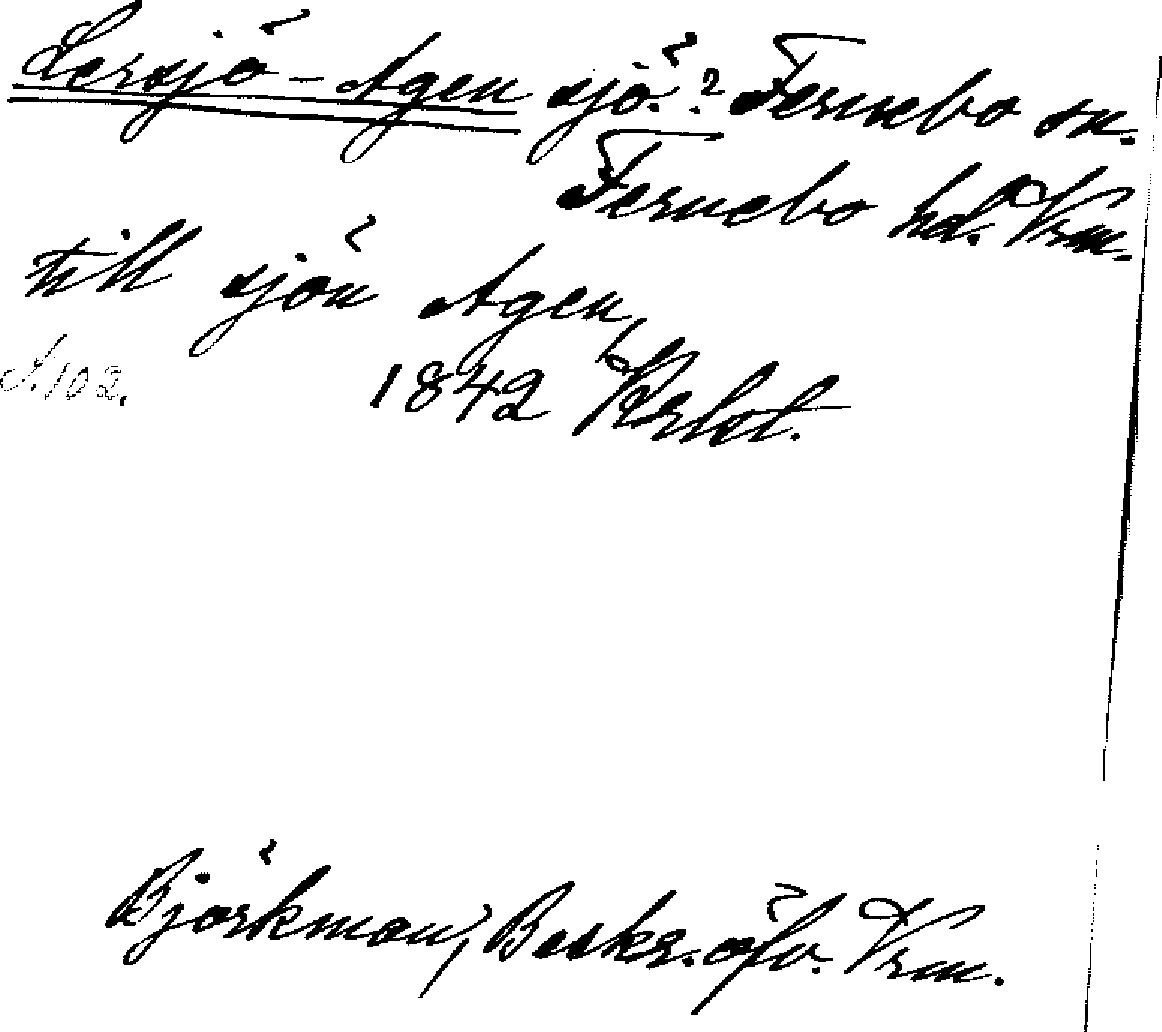 Lersjö-Agen sjö? Fernebo sn.
Fernebo hd. Vrm.
till sjön Agen
S. 102. 1842
Björkman, Beskr. öfv. Vrm.